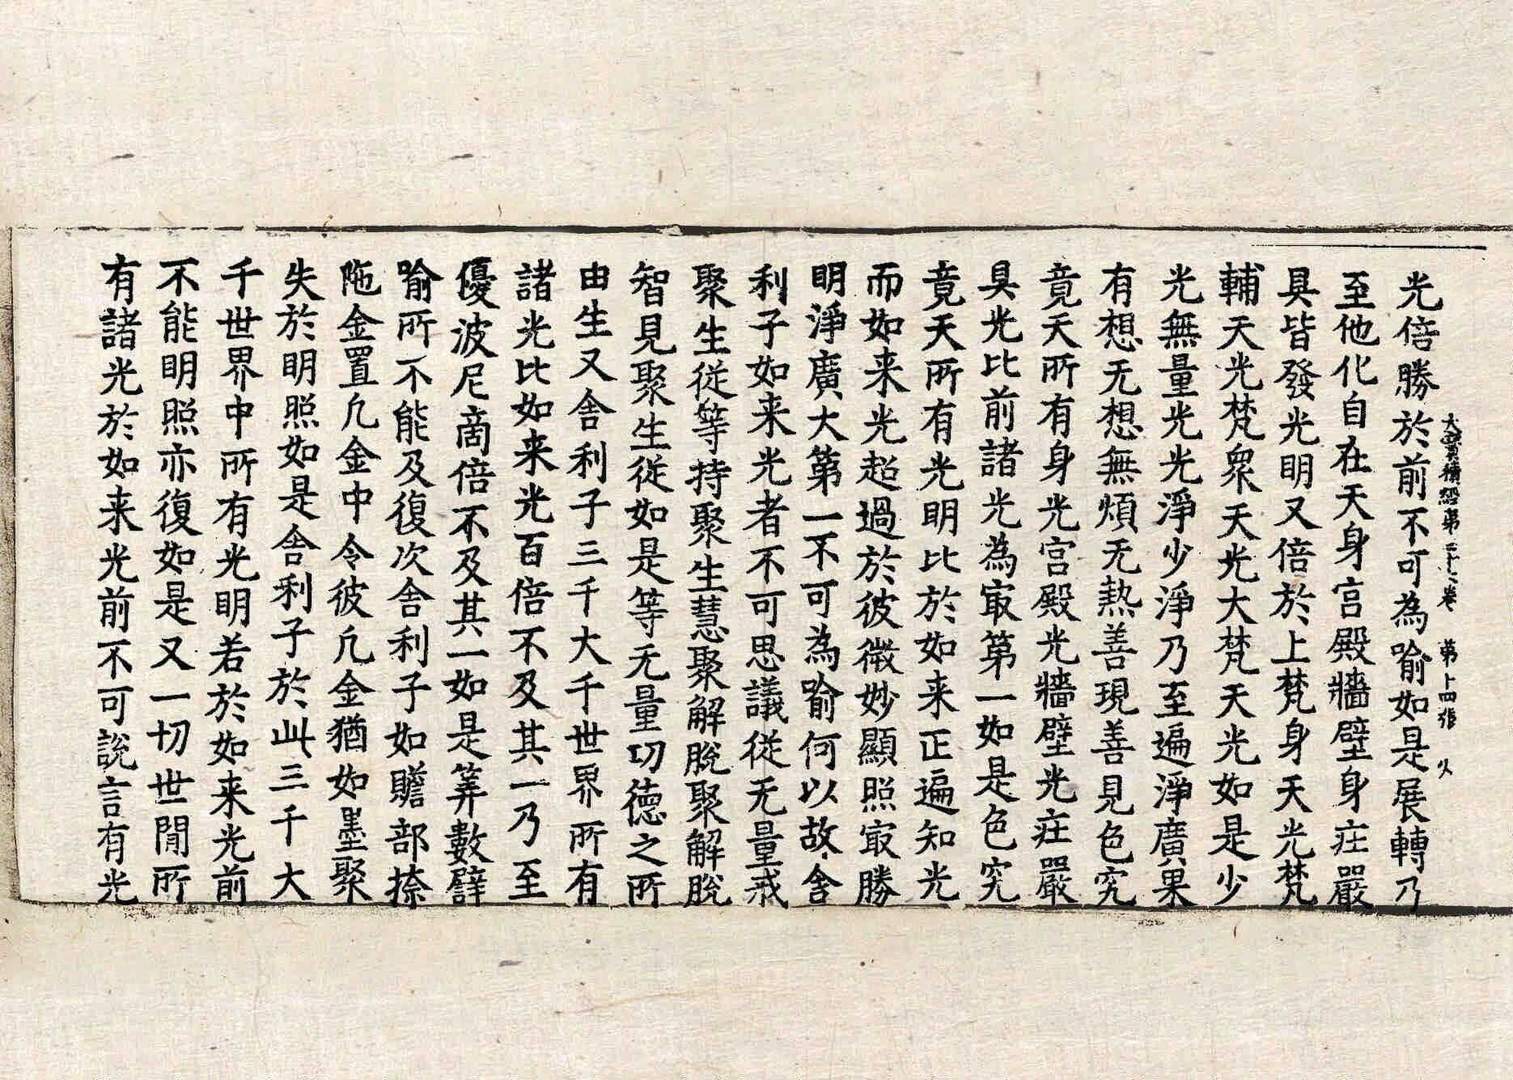 大寶積經第三十七卷　第十四張　火
光倍勝於前不可為喻如是展轉乃
至他化自在天身宮殿牆壁身庄嚴
具皆發光明又倍於上梵身天光梵
輔天光梵衆天光大梵天光如是少
光無量光光淨少淨乃至遍淨廣果
有想无想無煩无熱善現善見色究
竟天所有身光宮殿光牆壁光庄嚴
具光比前諸光為㝡第一如是色究
竟天所有光明比於如来正遍知光
而如来光超過於彼微妙顯照㝡勝
明淨廣大第一不可為喻何以故舍
利子如来光者不可思議從无量戒
聚生從等持聚生慧聚解脫聚解脫
智見聚生從如是等无量功德之所
由生又舍利子三千大千世界所有
諸光比如来光百倍不及其一乃至
優波尼啇倍不及其一如是筭數譬
喻所不能及復次舍利子如贍部捺
陁金置凢金中令彼凢金猶如墨聚
失於明照如是舍利子於此三千大
千世界中所有光明若於如来光前
不能明照亦復如是又一切世閒所
有諸光於如来光前不可說言有光